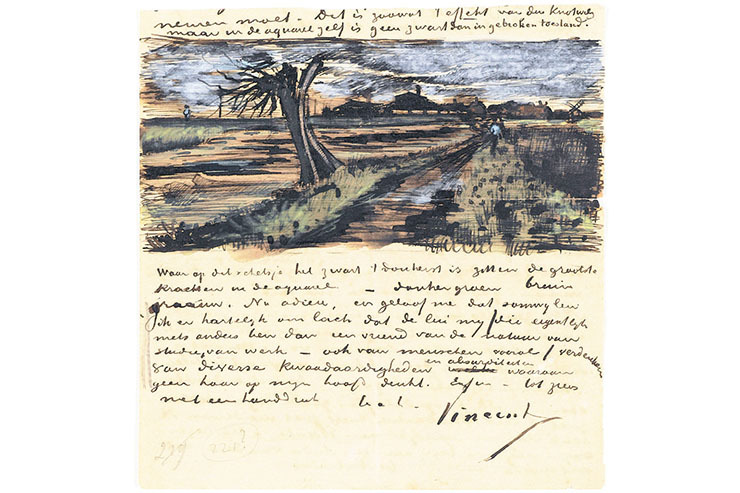 nemen moet. Dit is zoowat 't effekt van den Knotwilg
maar in de aquarel zelf is geen zwart dan in gebroken toestand.
Waar op dit schetsje het zwart 't donkerst is zitten de grootste
krachten in de aquarel – donkergroen bruin
graauw. Nu adieu, en geloof me dat somwylen
ik er hartelyk om lach dat de lui my /die eigentlyk
niets anders ben dan een vriend van de natuur van
studie, van werk – ook van menschen vooral/ verdenken
van diverse kwaadaardigheden en absurditeiten waaraan
geen haar op myn hoofd denkt. Enfin – tot ziens
met een handdruk t. à t.
Vincent